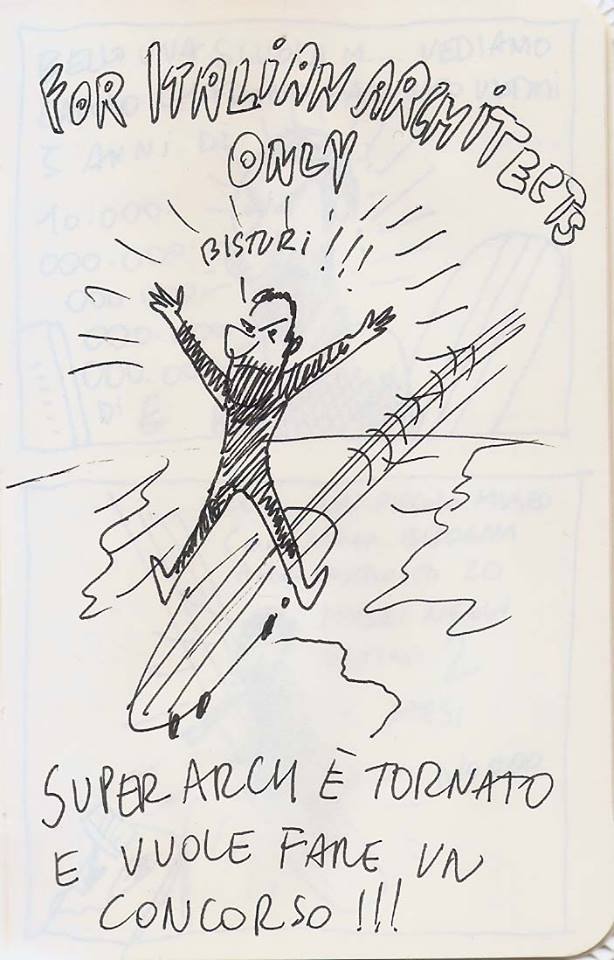 FOR ITALIAN ARCHITECTS
ONLY
BISTURI!!!
SUPER ARCH È TORNATO
E VUOLE FARE UN
CONCORSO!!!